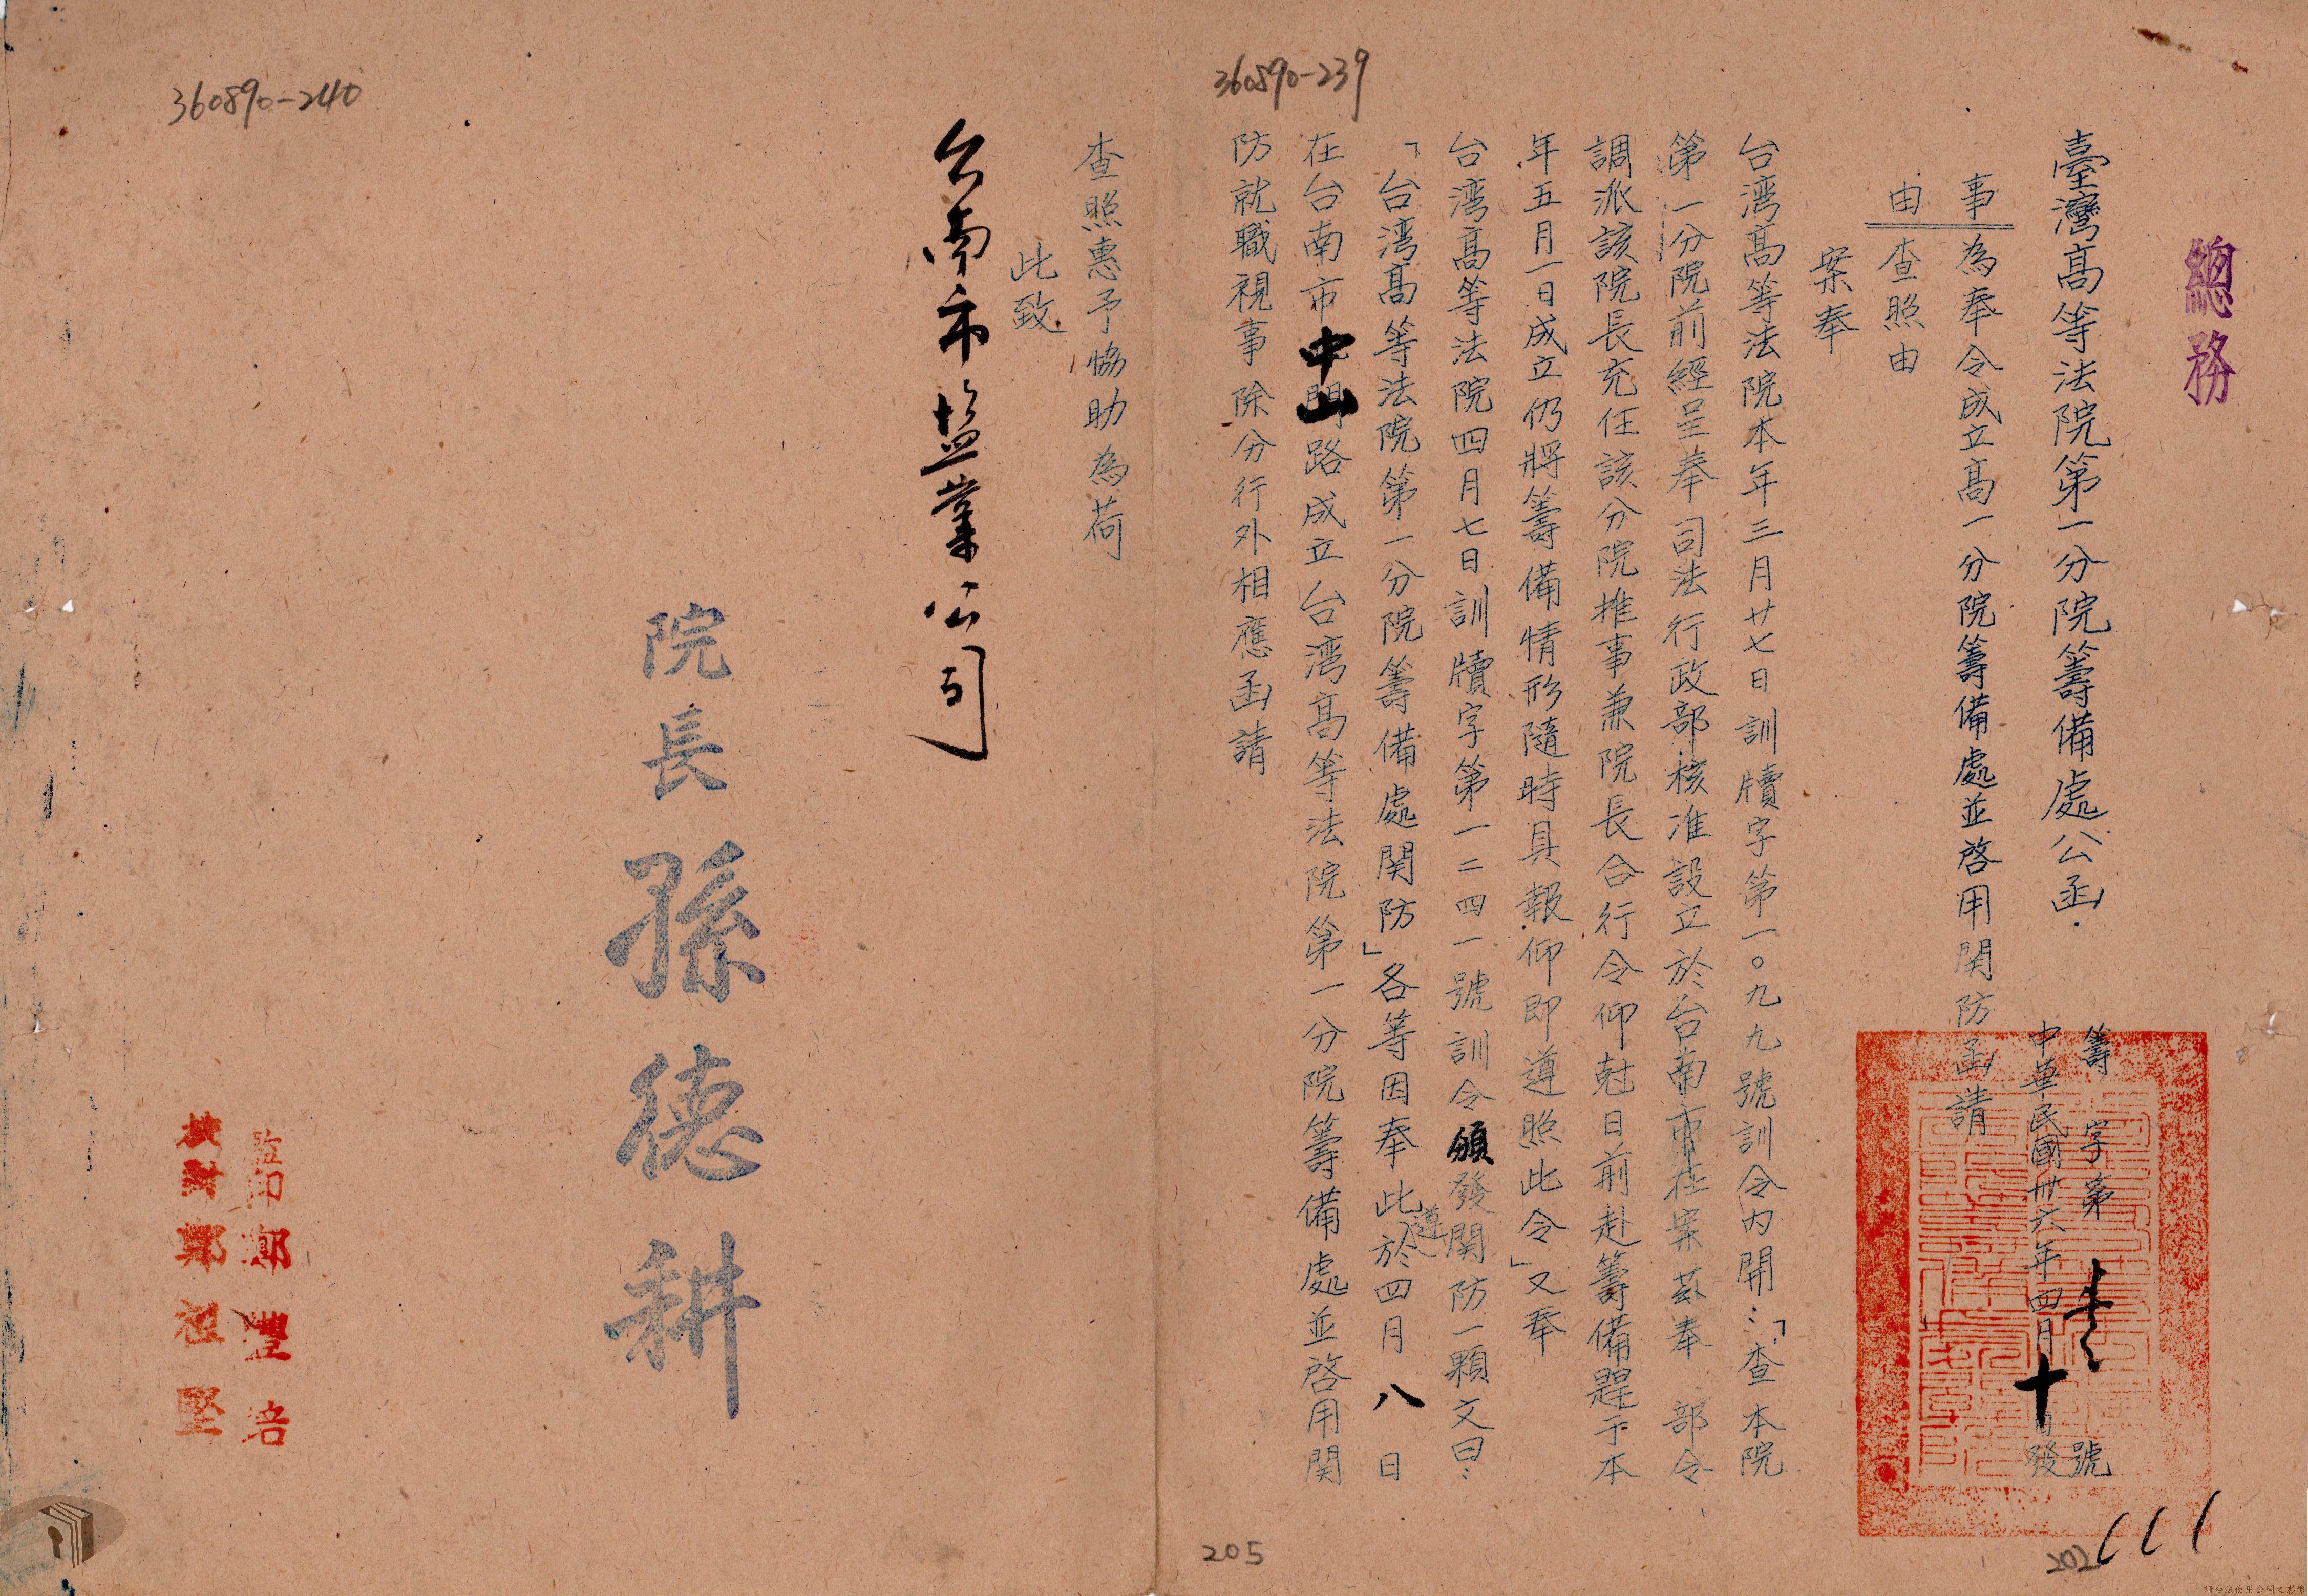 總務
臺灣高等法院第一分院籌備處公函
籌字第號
中華民國卅六年四月十日發
事由
為奉令成立高一分院籌備處並啓用関防函請
查照由
案奉
台湾高等法院本年三月廿七日訓牘字第一〇九九號訓令内開：「查本院
第一分院前經呈奉司法行政部核准設立於台南市在案茲奉 部令
調派該院長充任該分院推事兼院長合行令仰尅日前赴籌備趕于本
年五月一日成立仍將籌備情形隨時具報仰即遵照此令」又奉
台湾高等法院四月七日訓牘字第一二四一號訓令頒發関防一顆文曰：
「台湾高等法院第一分院籌備處関防」各等因奉此遵於四月八日
在台南市中山路成立台湾高等法院第一分院籌備處並啓用関
防就職視事除分行外相應函請
查照惠予恊助為荷
此致
台南市盐業公司
院長孫德耕
監印鄭豐培
校對鄭祖堅
360890-239
360890-240
205
202
請合法使用公開之影像